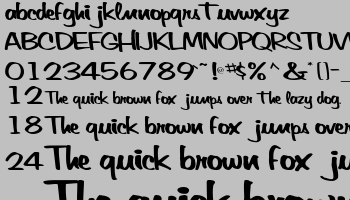 abcdefghijklmnopqrstuvwxyz
ABCDEFGHIJKLMNOPQRSTUVW
0123456789`~!@#$%^&*()-_
12 The quick brown fox jumps over the lazy dog.
18 The quick brown fox jumps over
24 The quick brown fox ju
The quick brown